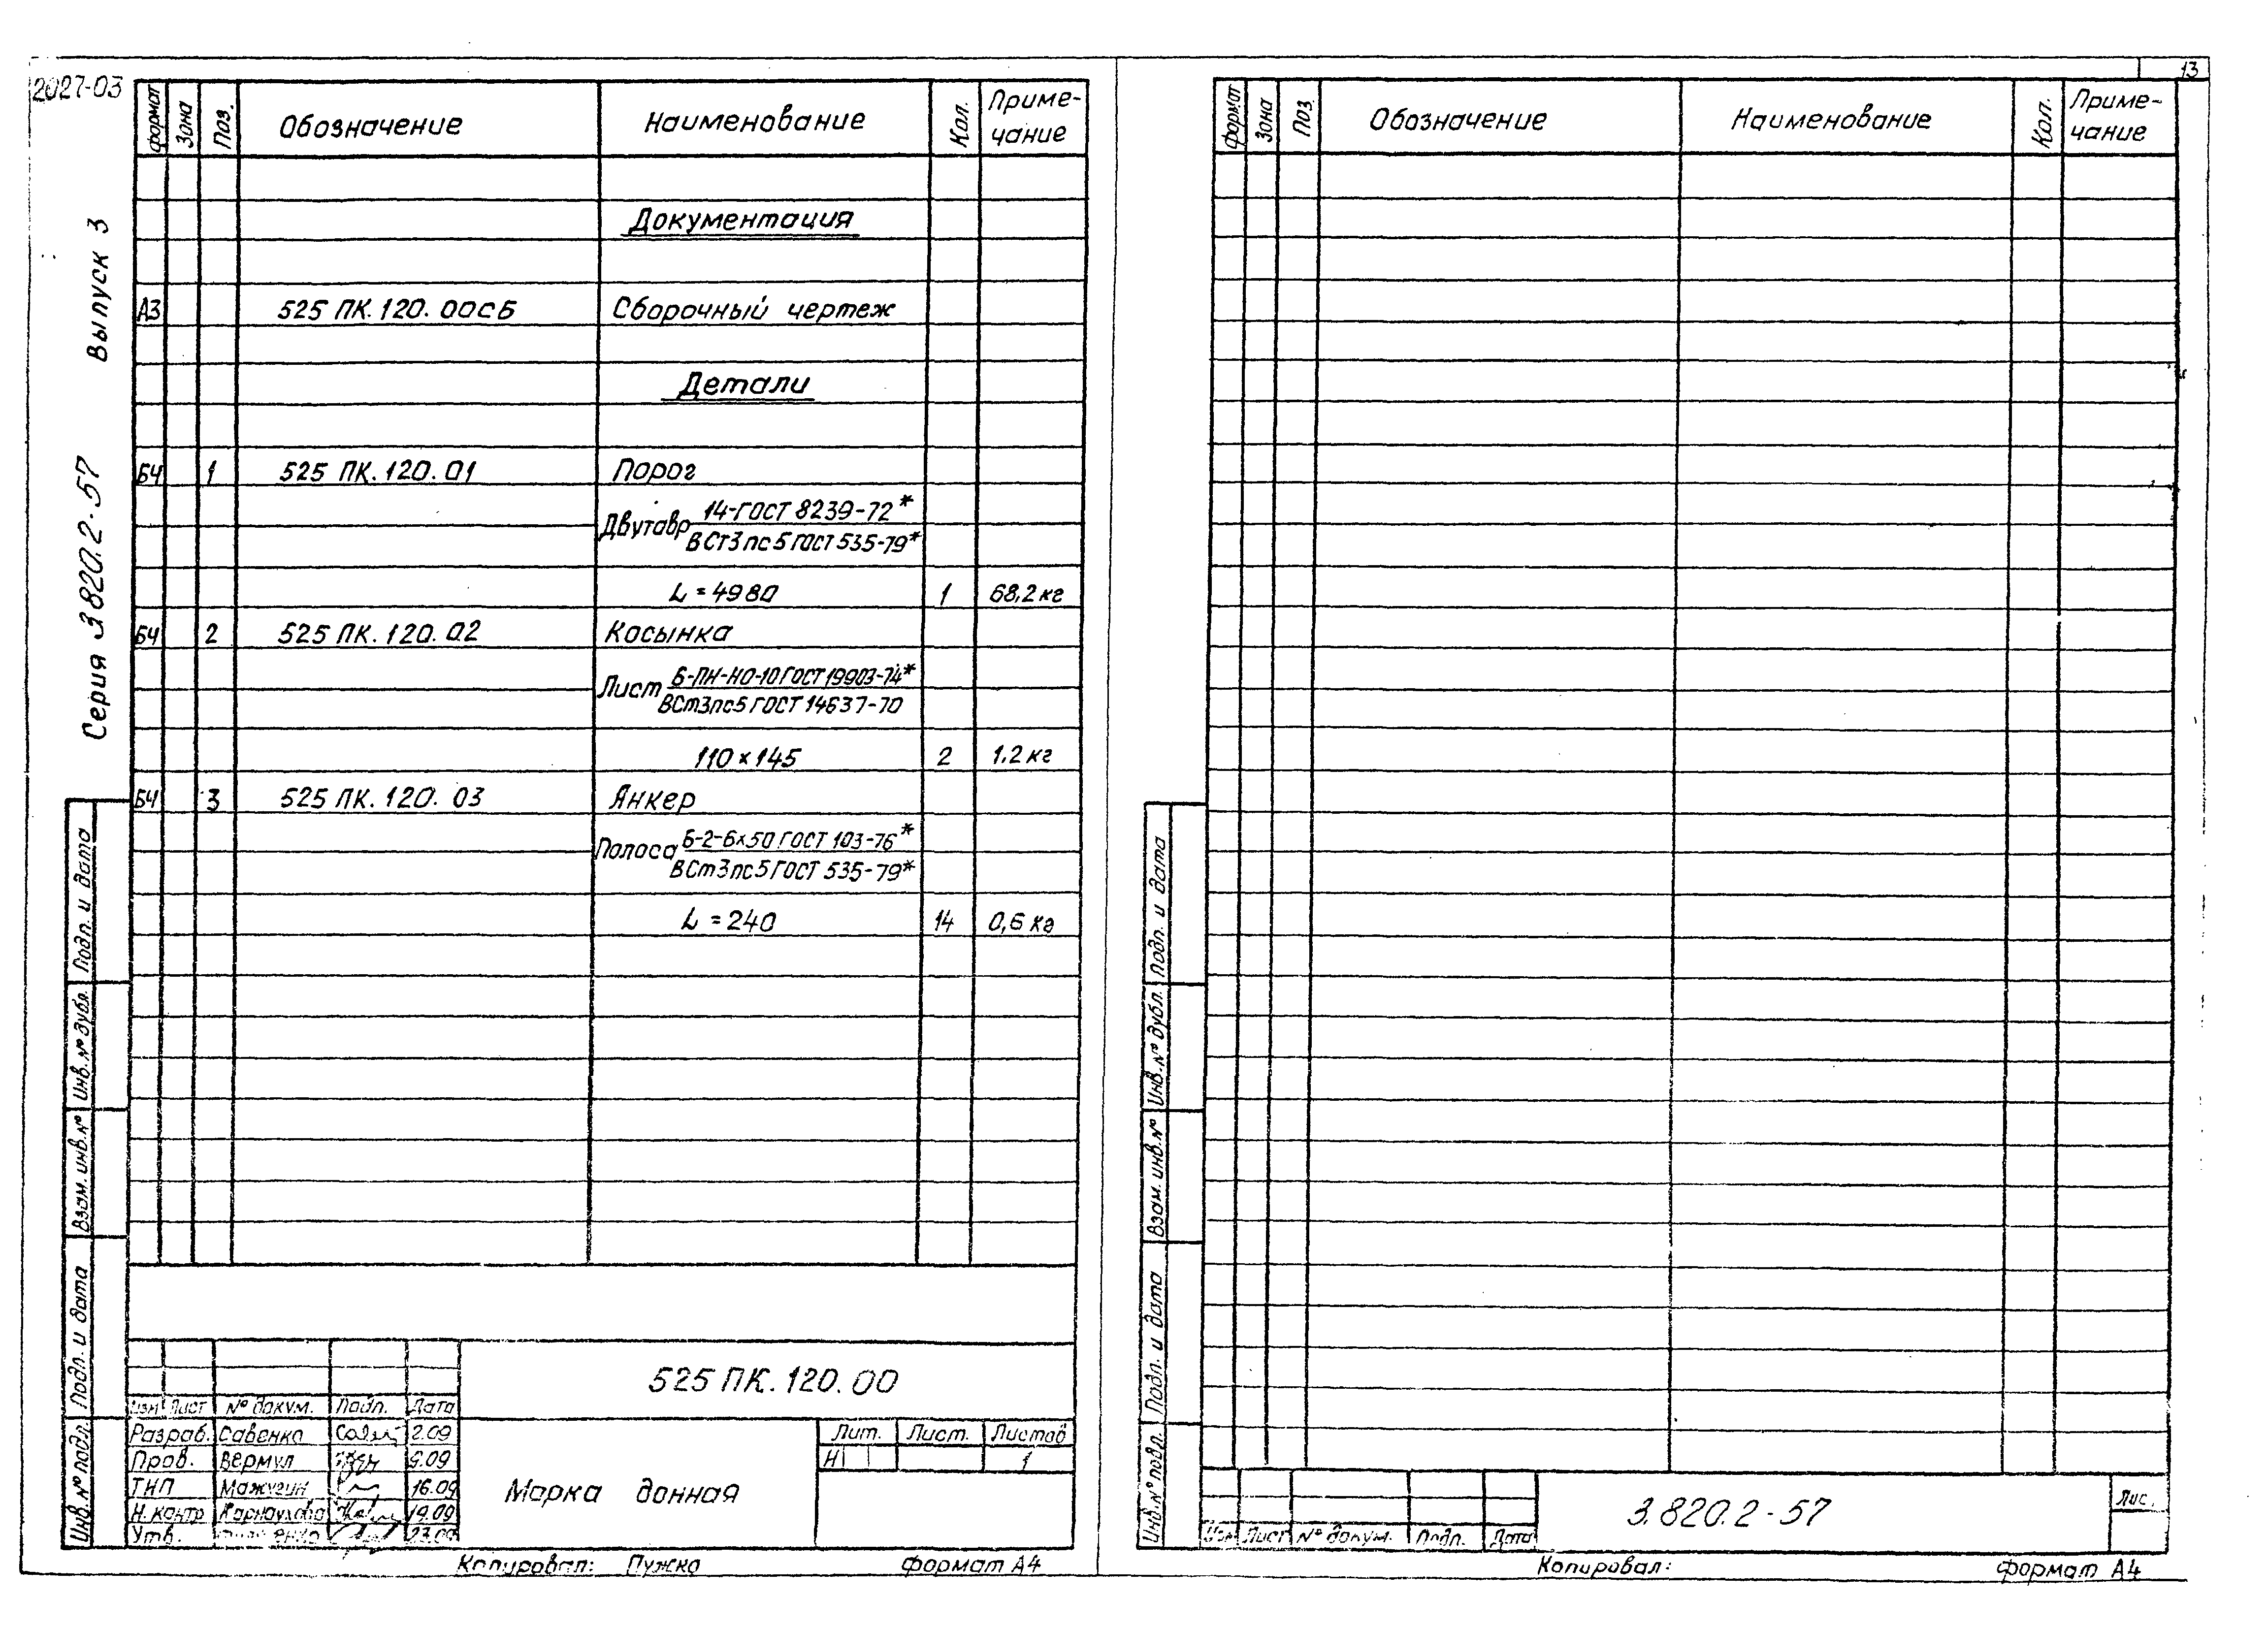 2027-03
13
Серия 3820.2-57 Выпуск 3
Формат Зона Поз. Обозначение Наименование Кол. Приме-
чание
Документация
А3 525 ПК.120.00СБ Сборочный чертеж
Детали
БЧ 1 525 ПК.120.01 Порог
Двутавр 14-ГОСТ 8239-72*
ВСт3пс5 ГОСТ 535-79*
L=4980 1 68,2кг
БЧ 2 525 ПК.120.02 Косынка
Лист Б-ПН-НО-10 ГОСТ 19903-74*
ВСт3пс5 ГОСТ 14637-70
110×145 2 1.2кг
БЧ 3 525 ПК.120.03 Анкер
Полоса Б-2-6×50 ГОСТ 103-76*
ВСт3пс5 ГОСТ 535-79*
L=240 14 0,6кг
Подп. и дата
Инв.№ дубл.
Взам. инв.№
Подп. и дата
Инв.№ подл.
525 ПК.120.00
Изм Лист № докум. Подп. Дата
Разраб. Савенко 2.09
Пров. Вермул 9.09
Мажугин 16.09
Н.контр 19.09
Утв. 23.09
Марка донная
Лит. Лист. Листов
Н 1
Копировал: Пужко формат А4
Формат Зона Поз. Обозначение Наименование Кол. Приме-
чание
Подп. и дата
Инв.№ дубл.
Взам. инв.№
Подп. и дата
Инв.№ подл.
Изм Лист № докум. Подп. Дата
3.820.2-57
Лис.
Копировал: формат А4